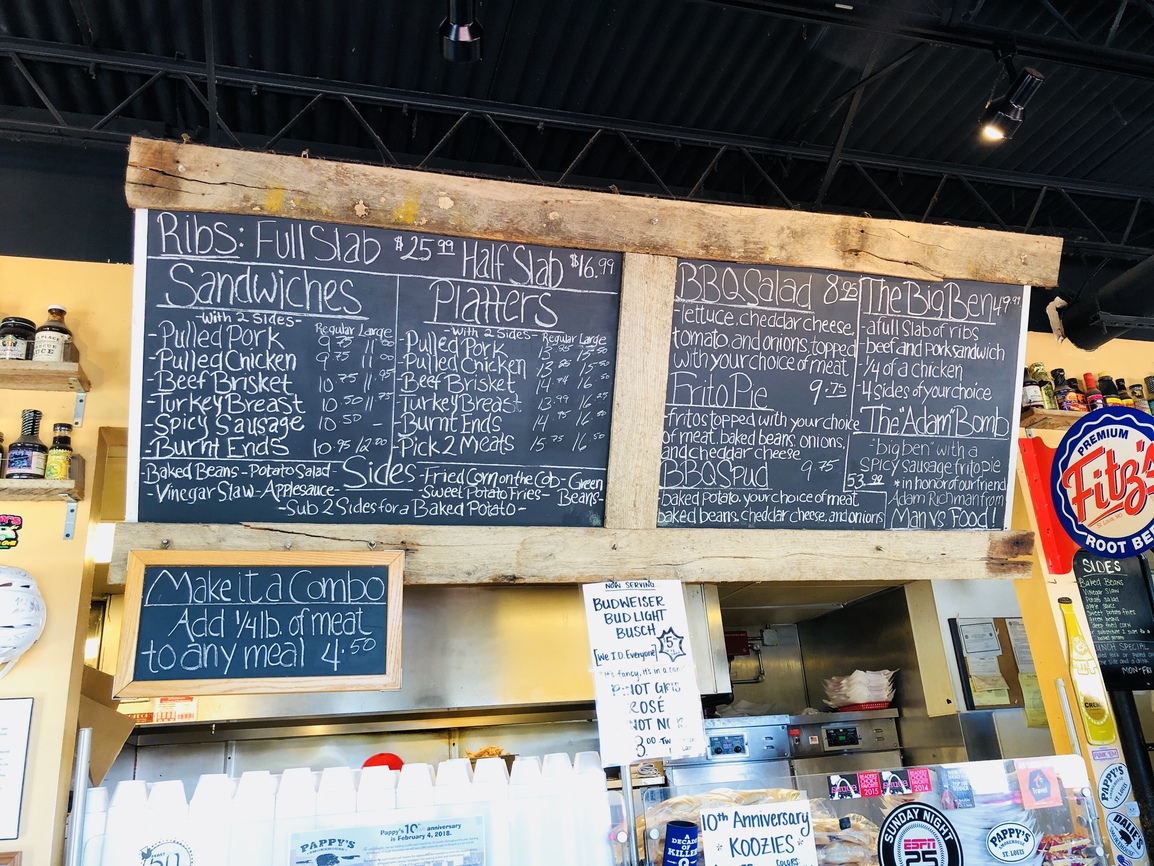 Ribs: Full Slab $25.99 Half Slab $16.99
Sandwiches
-With 2 Sides-
Regular Large
-Pulled Pork 9.75 11.00
-Pulled Chicken 9.75 11.00
-Beef Brisket 10.75 11.95
-Turkey Breast 10.50 11.75
-Spicy Sausage 10.50 -
-Burnt Ends 10.95 12.00
Platters
-With 2 Sides-
Regular Large
-Pulled Pork 15.50
-Pulled Chicken 15.50
-Beef Brisket 16.
-Turkey Breast 13.99 16.25
-Burnt Ends 16.
-Pick 2 Meats 15.75 16.50
Sides
-Baked Beans-Potato Salad-
-Fried Corn on the Cob-Green
-Vinegar Slaw-Applesauce-
-Sweet Potato Fries- Beans-
-Sub 2 Sides for a Baked Potato-
BBQ Salad 8.95
-lettuce, cheddar cheese,
tomato, and onions, topped
with your choice of meat
Frito Pie 9.75
-fritos topped with your choice
of meat, baked beans, onions,
and cheddar cheese
BBQ Spud 9.75
baked potato, your choice of meat
baked beans, cheddar cheese, and onions
The Big Ben 49.99
-a full slab of ribs
-beef and pork sandwich
-1/4 of a chicken
-4 sides of your choice
The "Adam" Bomb
"big ben" with a
spicy sausage frito pie
53.99
*in honor of our friend
Adam Richman from
Man vs Food!
Make it a Combo
Add 1/4 lb. of meat
to any meal 4.50
NOW SERVING
BUDWEISER
BUD LIGHT
BUSCH
[We I.D. Everyone]
It's fancy, it's in a
ROSÉ
3.00
PREMIUM
Fitz's
ST. LOUIS, MO
ROOT BEER
SIDES
Baked Beans
Vinegar Slaw
Potato Salad
apple sauce
sweet potato fries
green beans
deep fried corn
LUNCH SPECIAL
MON-FRI
Pappy's 10th anniversary
is February 4, 2018.
PAPPY'S
A
DECADE
OF
KILLER
10th Anniversary
KOOZIES
COLORS
2015
2014
SUNDAY NIGHT
ESPN
25
PAPPY'S
SMOKEHOUSE
ST. LOUIS
Travel
PAPPY'S
ST. LOUIS